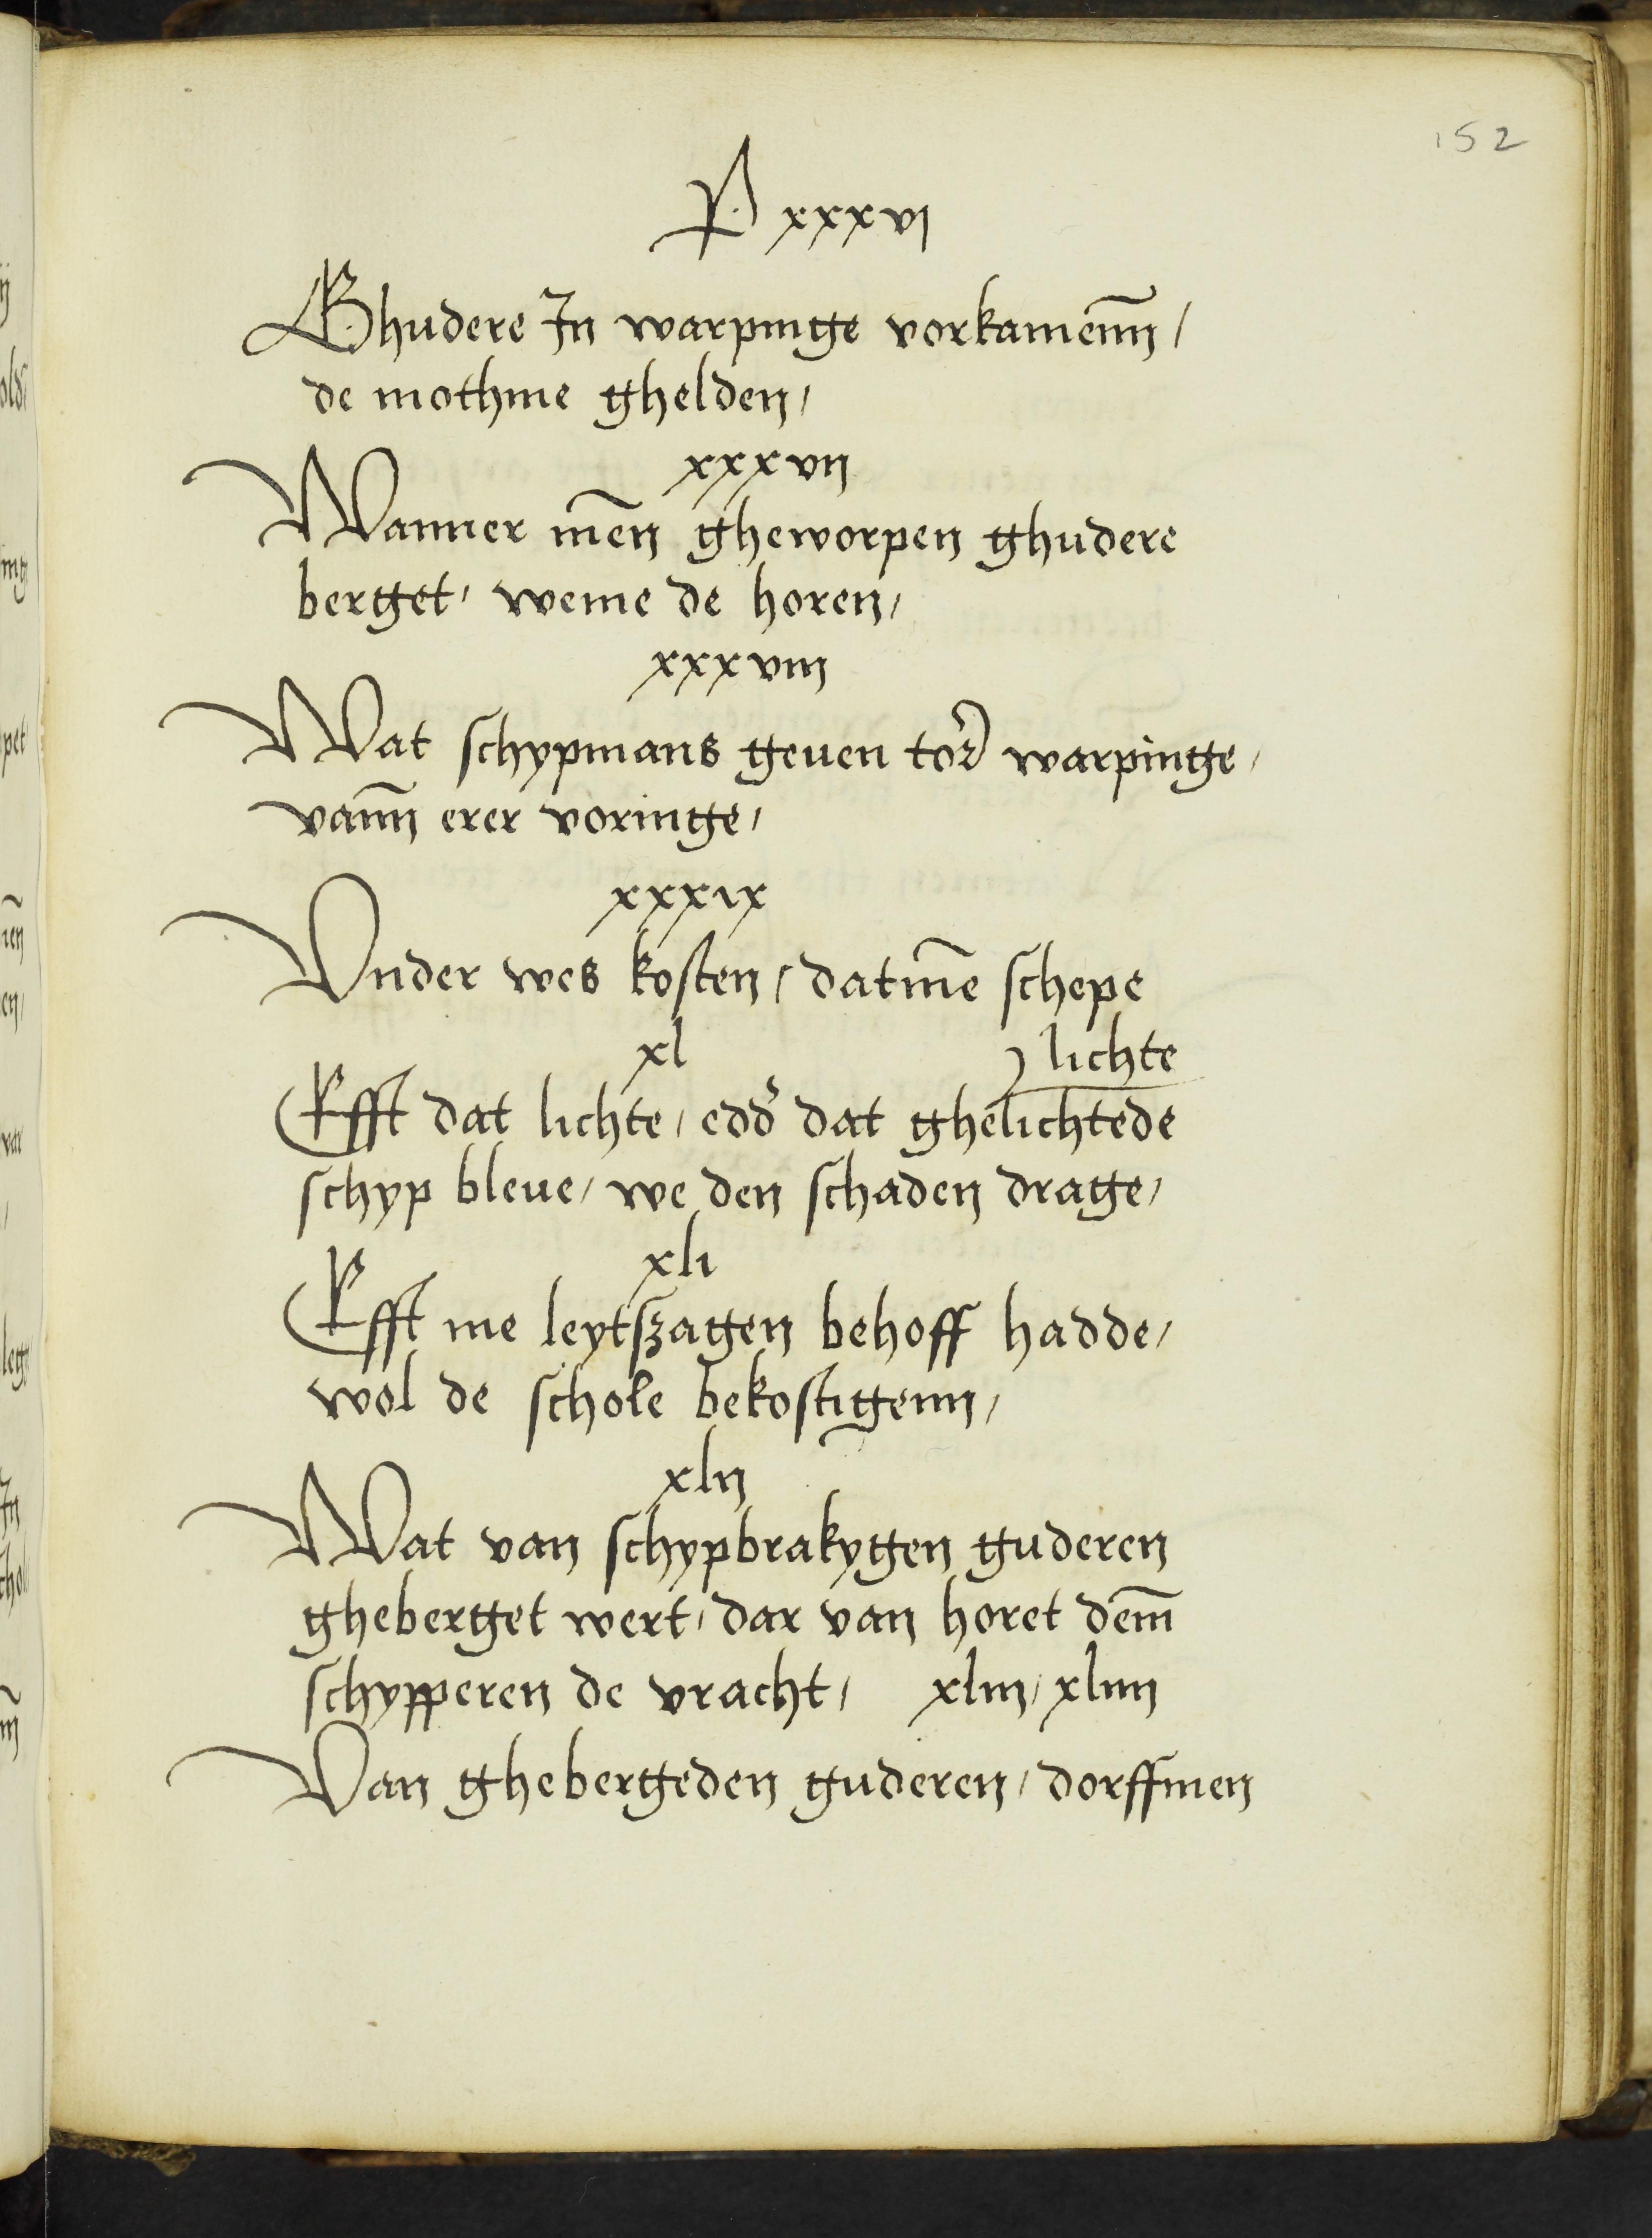 152
P xxxvi
Ghudere In warpinge vorkamen̄n /
de mothme ghelden /
xxxvii
Wanner mēn gheworpen ghudere
berget / weme de horen /
xxxviii
Wat schypmans geuen tor̉ warpinge /
van̄n erer voringe /
xxxix
Vnder wes kosten / datmē schepe
lichte
xl
Efft dat lichte / edd̉ dat ghelichtede
schyp bleue / we den schaden drage /
xli
Efft me leytszagen behoff hadde /
wol de schole bekostigenn /
xlii
Wat van schypbrakygen guderen
gheberget wert / dar van horet dem̄
schypperen de vracht / xliii / xliiii
Van ghebergeden guderen / dorffmen